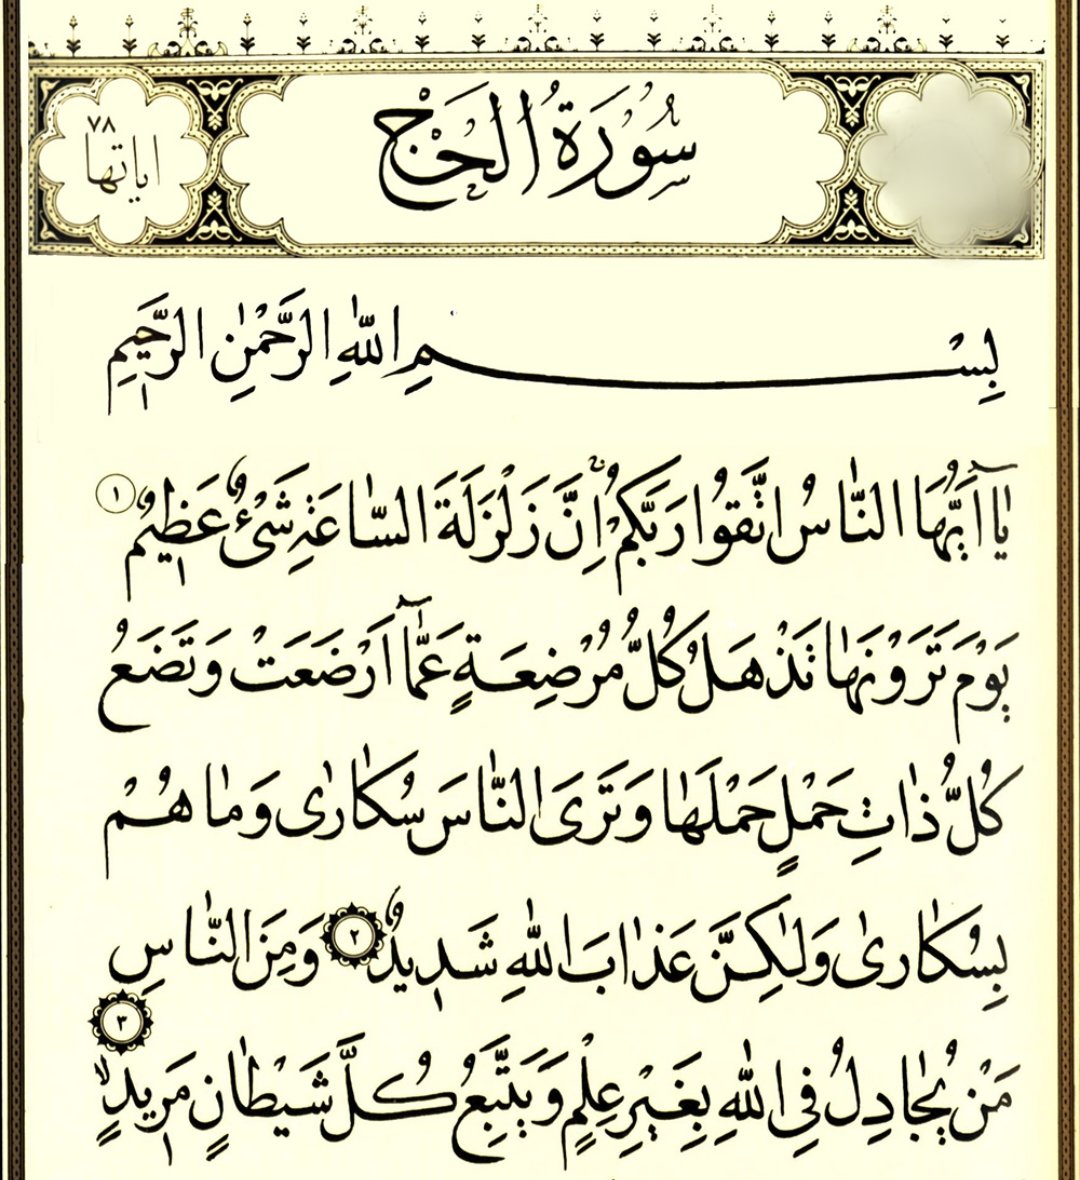 سُورَةُ الْحَجِّ
٧٨
اياتها
بِسْمِ اللّٰهِ الرَّحْمٰنِ الرَّحٖيمِ
يَٓا اَيُّهَا النَّاسُ اتَّقُوا رَبَّكُمْۚ اِنَّ زَلْزَلَةَ السَّاعَةِ شَيْءٌ عَظٖيمٌ ١
يَوْمَ تَرَوْنَهَا تَذْهَلُ كُلُّ مُرْضِعَةٍ عَمَّٓا اَرْضَعَتْ وَتَضَعُ
كُلُّ ذَاتِ حَمْلٍ حَمْلَهَا وَتَرَى النَّاسَ سُكَارٰى وَمَا هُمْ
بِسُكَارٰى وَلٰكِنَّ عَذَابَ اللّٰهِ شَدٖيدٌ ٢ وَمِنَ النَّاسِ
مَنْ يُجَادِلُ فِي اللّٰهِ بِغَيْرِ عِلْمٍ وَيَتَّبِعُ كُلَّ شَيْطَانٍ مَرٖيدٍۙ ٣